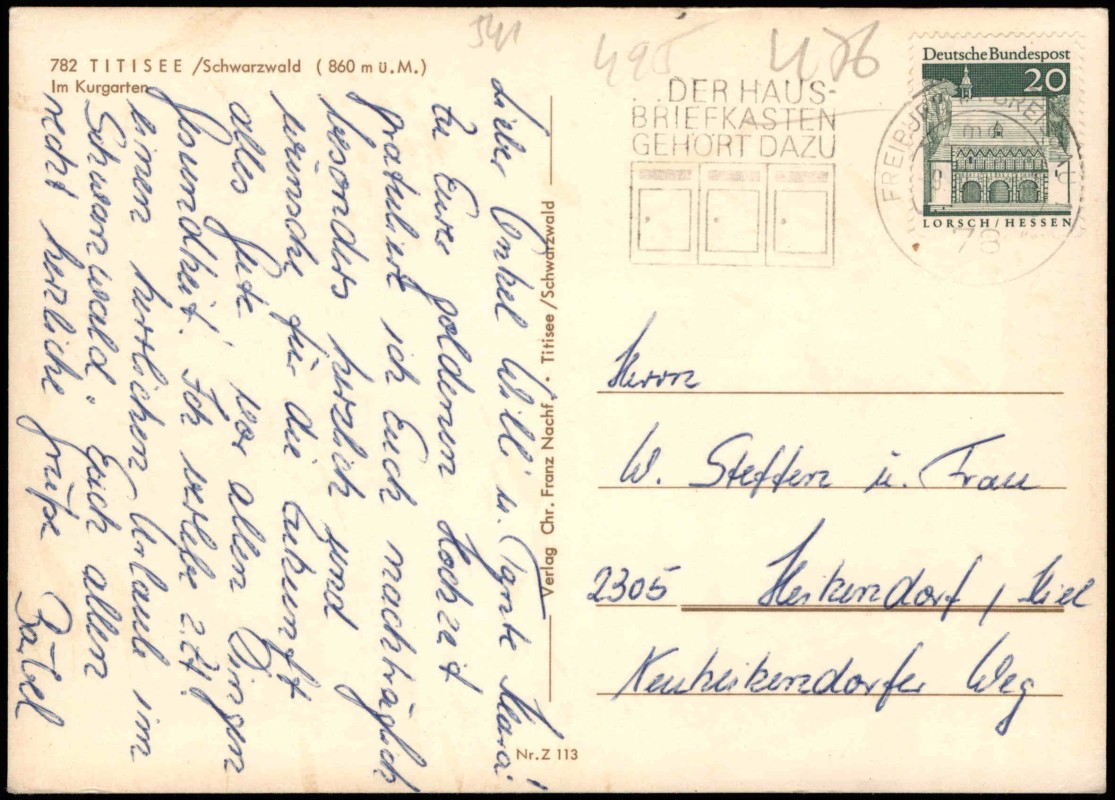 782 TITISEE /Schwarzwald (860 m ü.M.)
Im Kurgarten
541
495
476
DER HAUS-
BRIEFKASTEN
GEHÖRT DAZU
Deutsche Bundespost
20
LORSCH/HESSEN
FREIBURG IM BREI
78
Lieber Onkel Willi u. Tante Klara!
Zu Eurer goldenen Hochzeit
gratuliere ich Euch nachträglich
besonders herzlich und
wünsche für die Zukunft
alles Gute vor allen Dingen
Gesundheit! Ich verlebe z.Zt.
einen herrlichen Urlaub im
Schwarzwald. Euch allen
recht herzliche Grüße
Bärbel
Verlag Chr. Franz Nachf. · Titisee/Schwarzwald
Nr. Z 113
Herrn
W. Steffen u. Frau
2305 Heikendorf / Kiel
Neuheikendorfer Weg